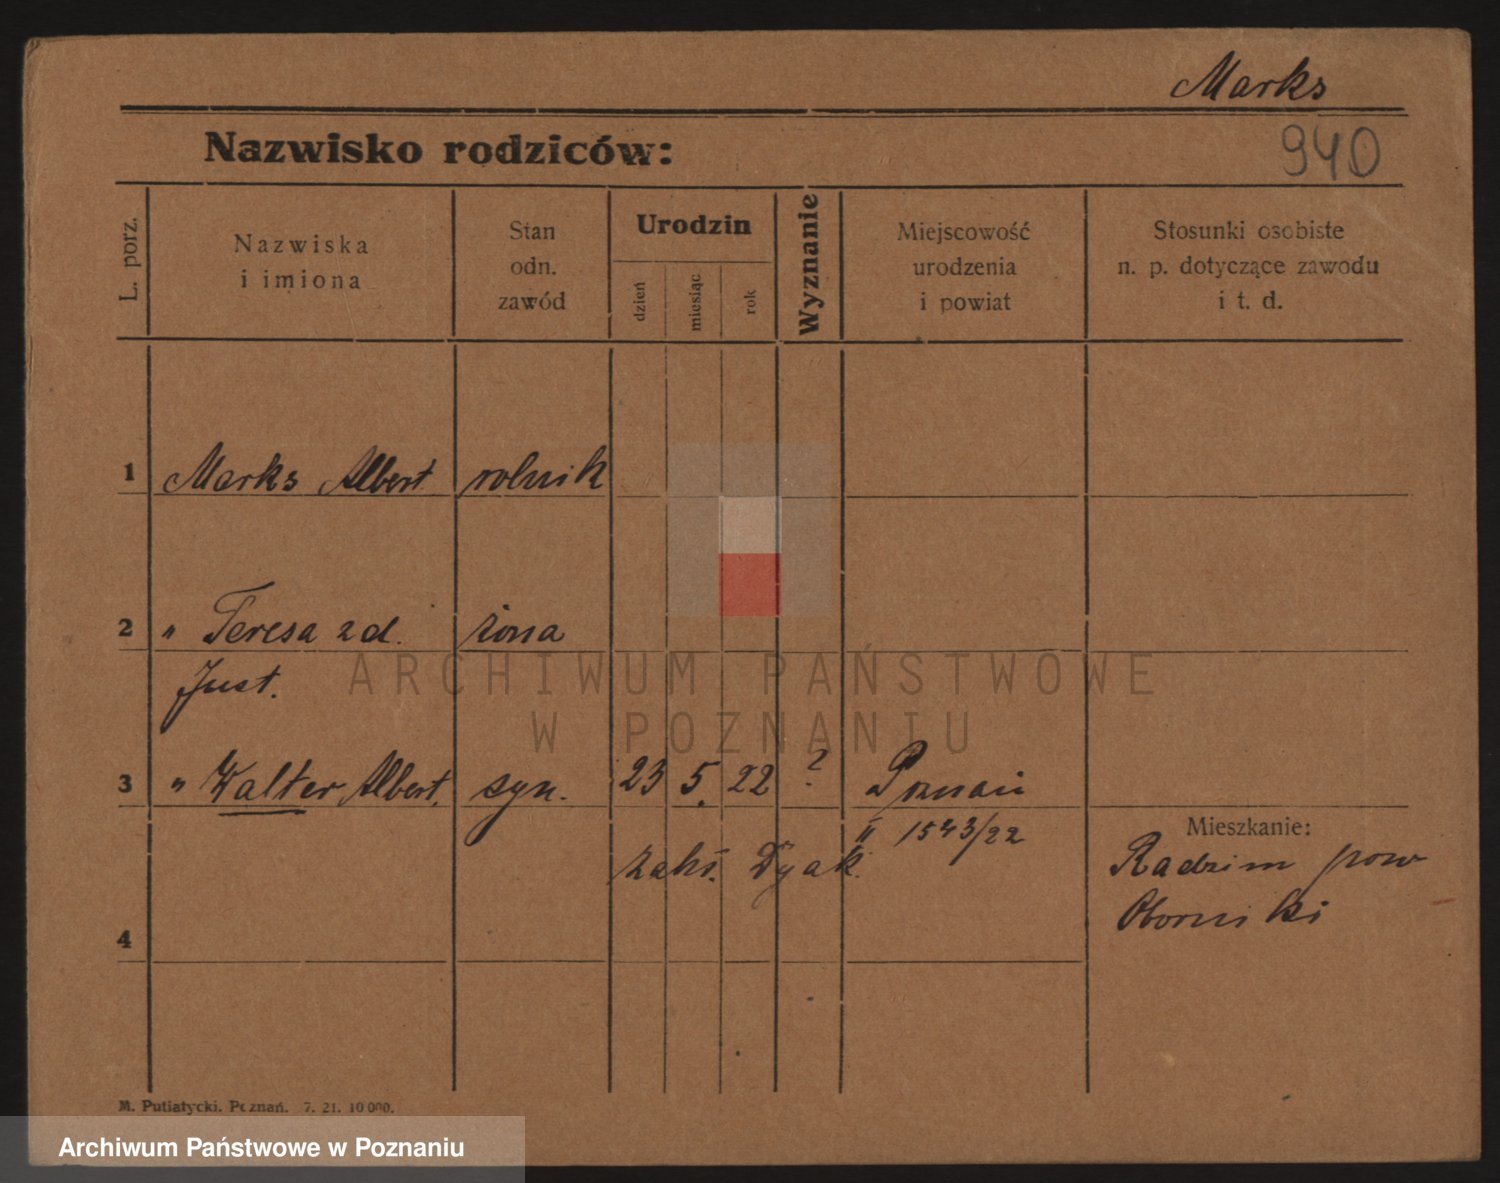 Marks
Nazwisko rodziców:
940
L. porz.
Nazwiska
i imiona
Stan
odn.
zawód
Urodzin
dzień
miesiąc
rok
Wyznanie
Miejscowość
urodzenia
i powiat
Stosunki osobiste
n. p. dotyczące zawodu
i t. d.
1 Marks Albert rolnik
2 " Teresa zd. żona
Just.
ARCHIWUM PAŃSTWOWE
W POZNANIU
3 " Walter Albert. syn. 23 5. 22 ? Poznań
II 1543/22
Mieszkanie:
Radzim pow
Oborniki
4
M. Putiatycki. Poznań. 7. 21. 10 000.
Archiwum Państwowe w Poznaniu